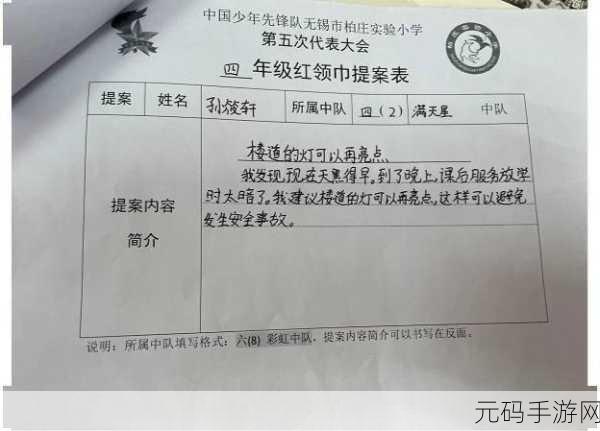 中国少年先锋队无锡市柏庄实验小学
第五次代表大会
四 年级红领巾提案表
提案 姓名 孙筱轩 所属中队 四（2）满天星 中队
楼道的灯可以再亮点
我发现现在天黑得早。到了晚上,课后服务放学
时太暗了。我建议楼道的灯可以再亮点,这样可以避免
发生安全事故。
提案内容
简介
说明：所属中队填写格式：六(8) 彩虹中队，提案内容简介可以书写在反面。
元码手游网